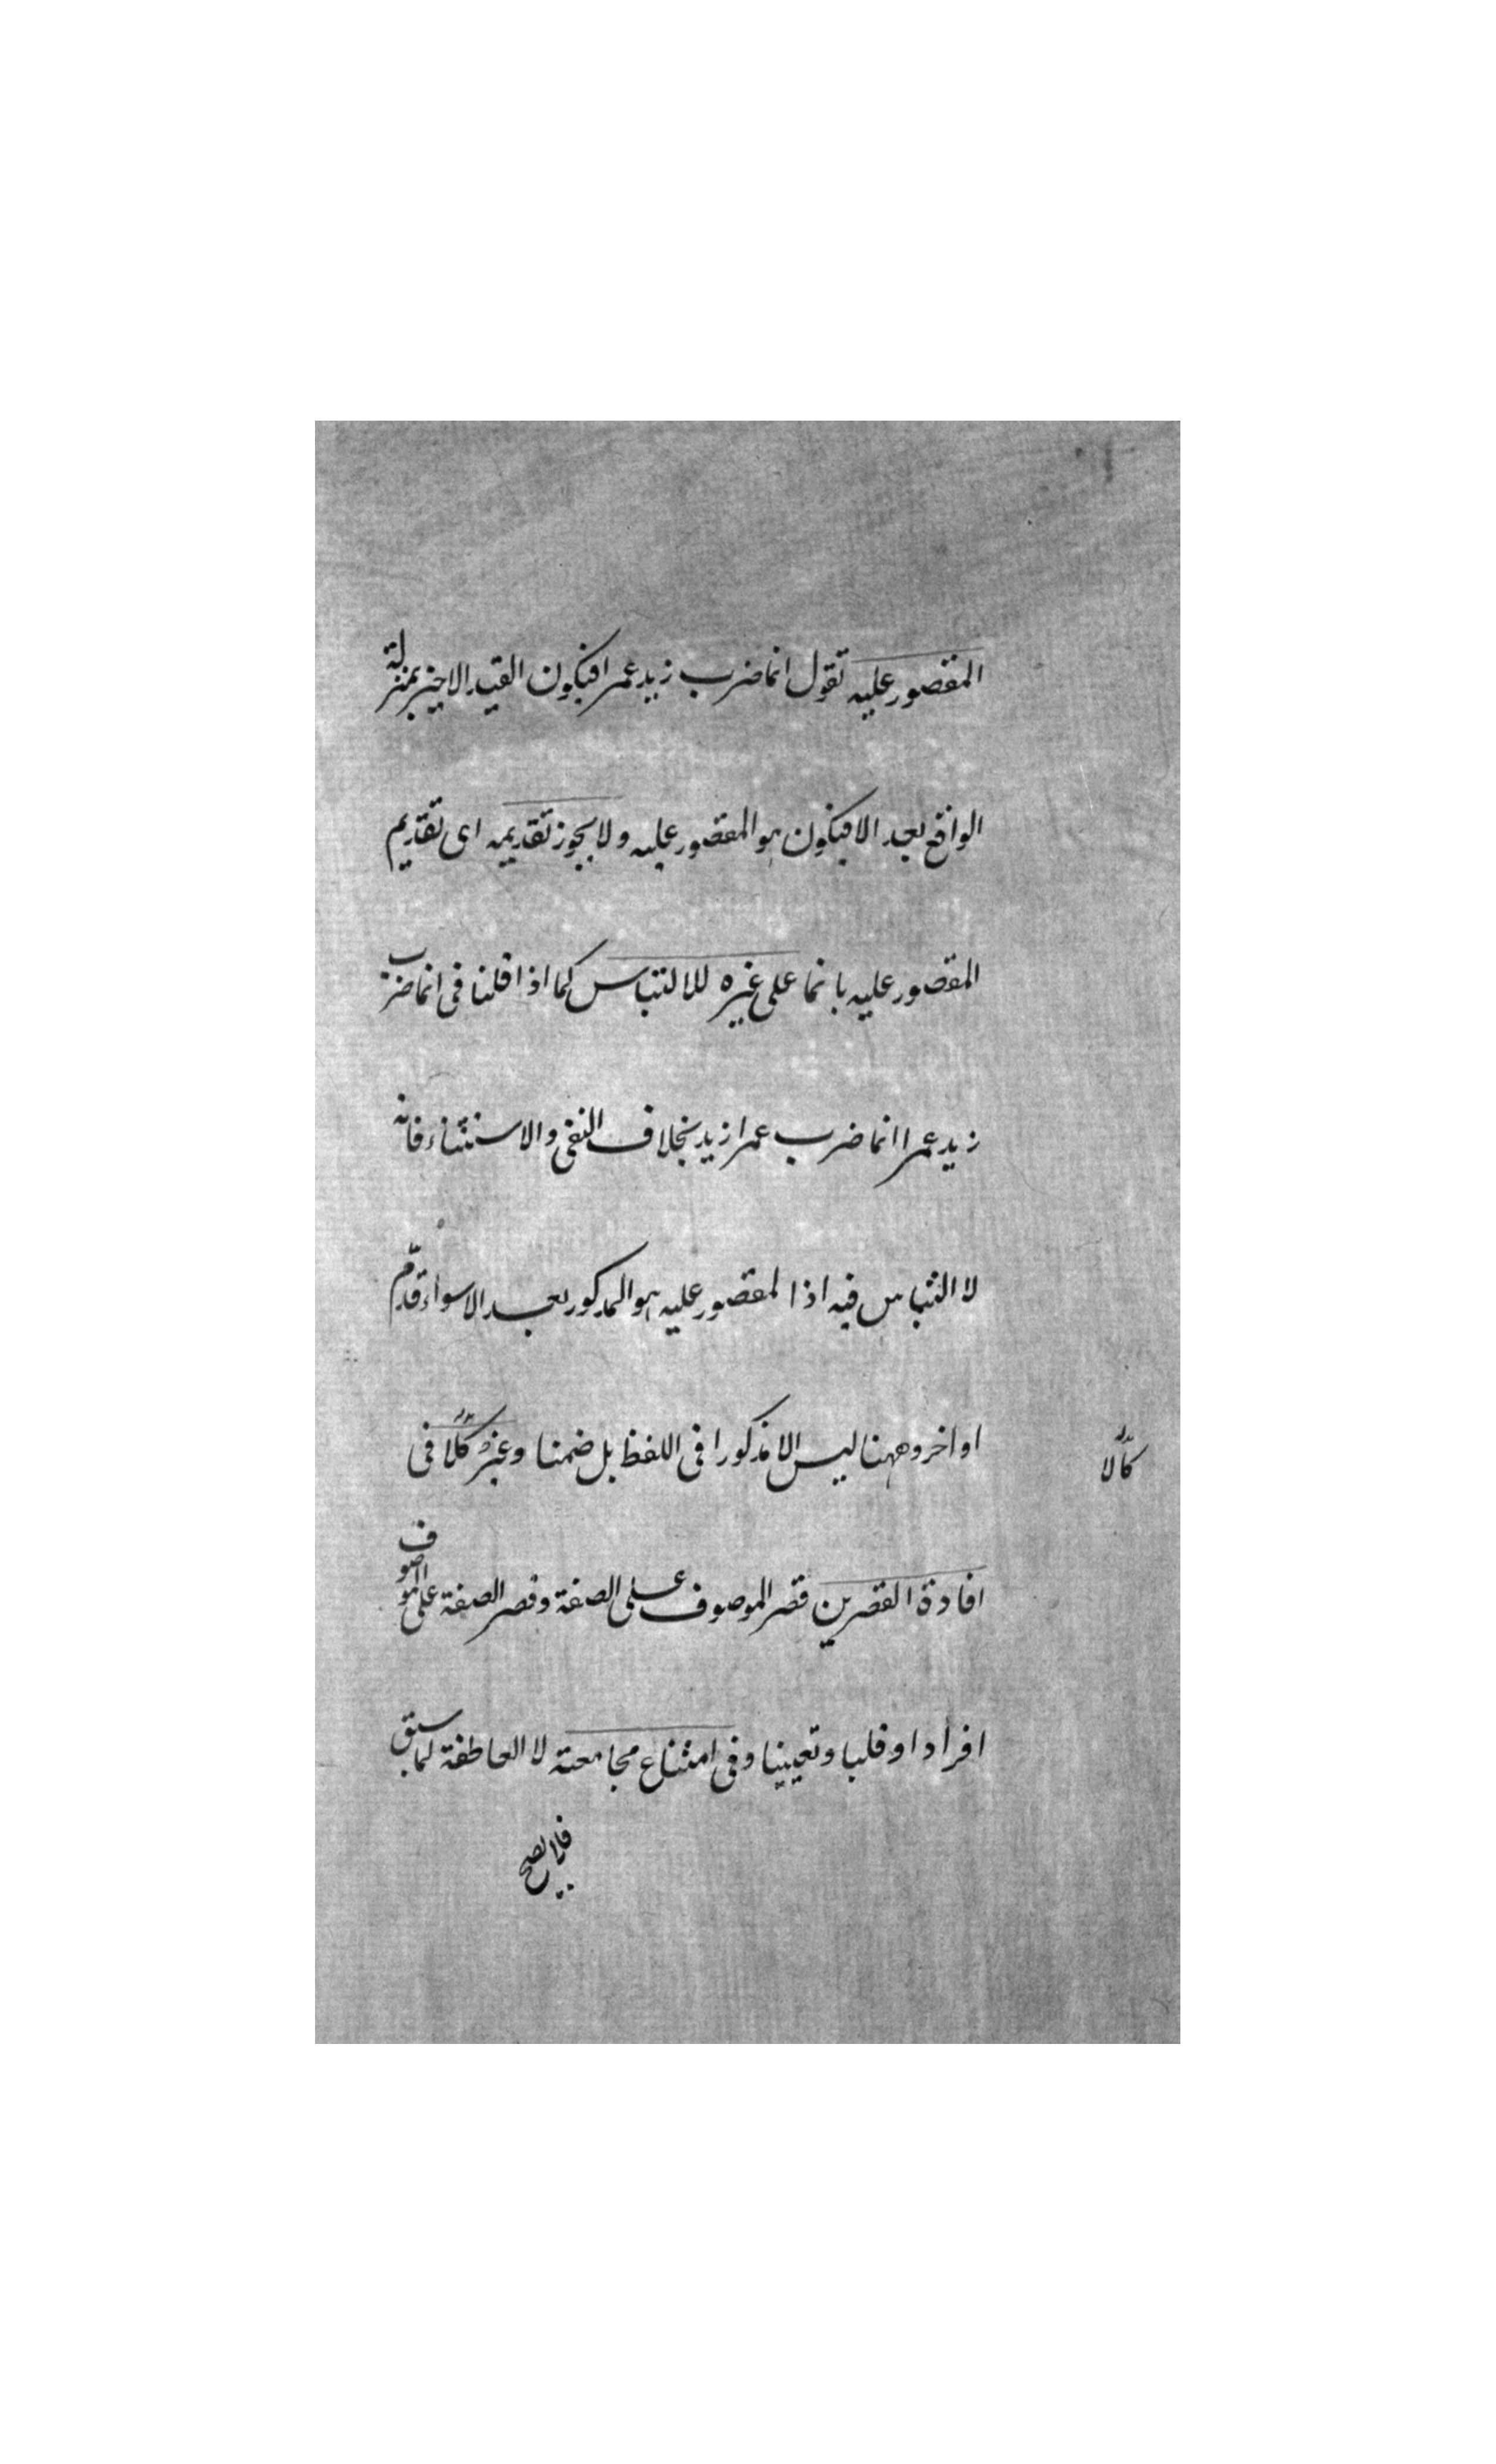 المقصور عليه تقول انما ضرب زيد عمرا فيكون القيد الاخير بمنزلة
الواقع بعد الا فيكون هو المقصور عليه ولا يجوز تقديمه اى تقديم
المقصور عليه بانما على غيره للالتباس كما اذا قلنا فى انما ضرب
زيد عمرا انما ضرب عمرا زيد بخلاف النفى والاستثناء فانه
لا التباس فيه اذا لمقصور عليه هو المذكور بعد الا سواء قدم
او اخر وههنا ليس الا مذكورا فى اللفظ بل ضمنا وغير كالا فى
كالا
افادة القصرين قصر الموصوف على الصفة وقصر الصفة على الموصوف
افرادا وقلبا وتعيينا وفى امتناع مجامعته لا العاطفة لما سبق
فلا يصح